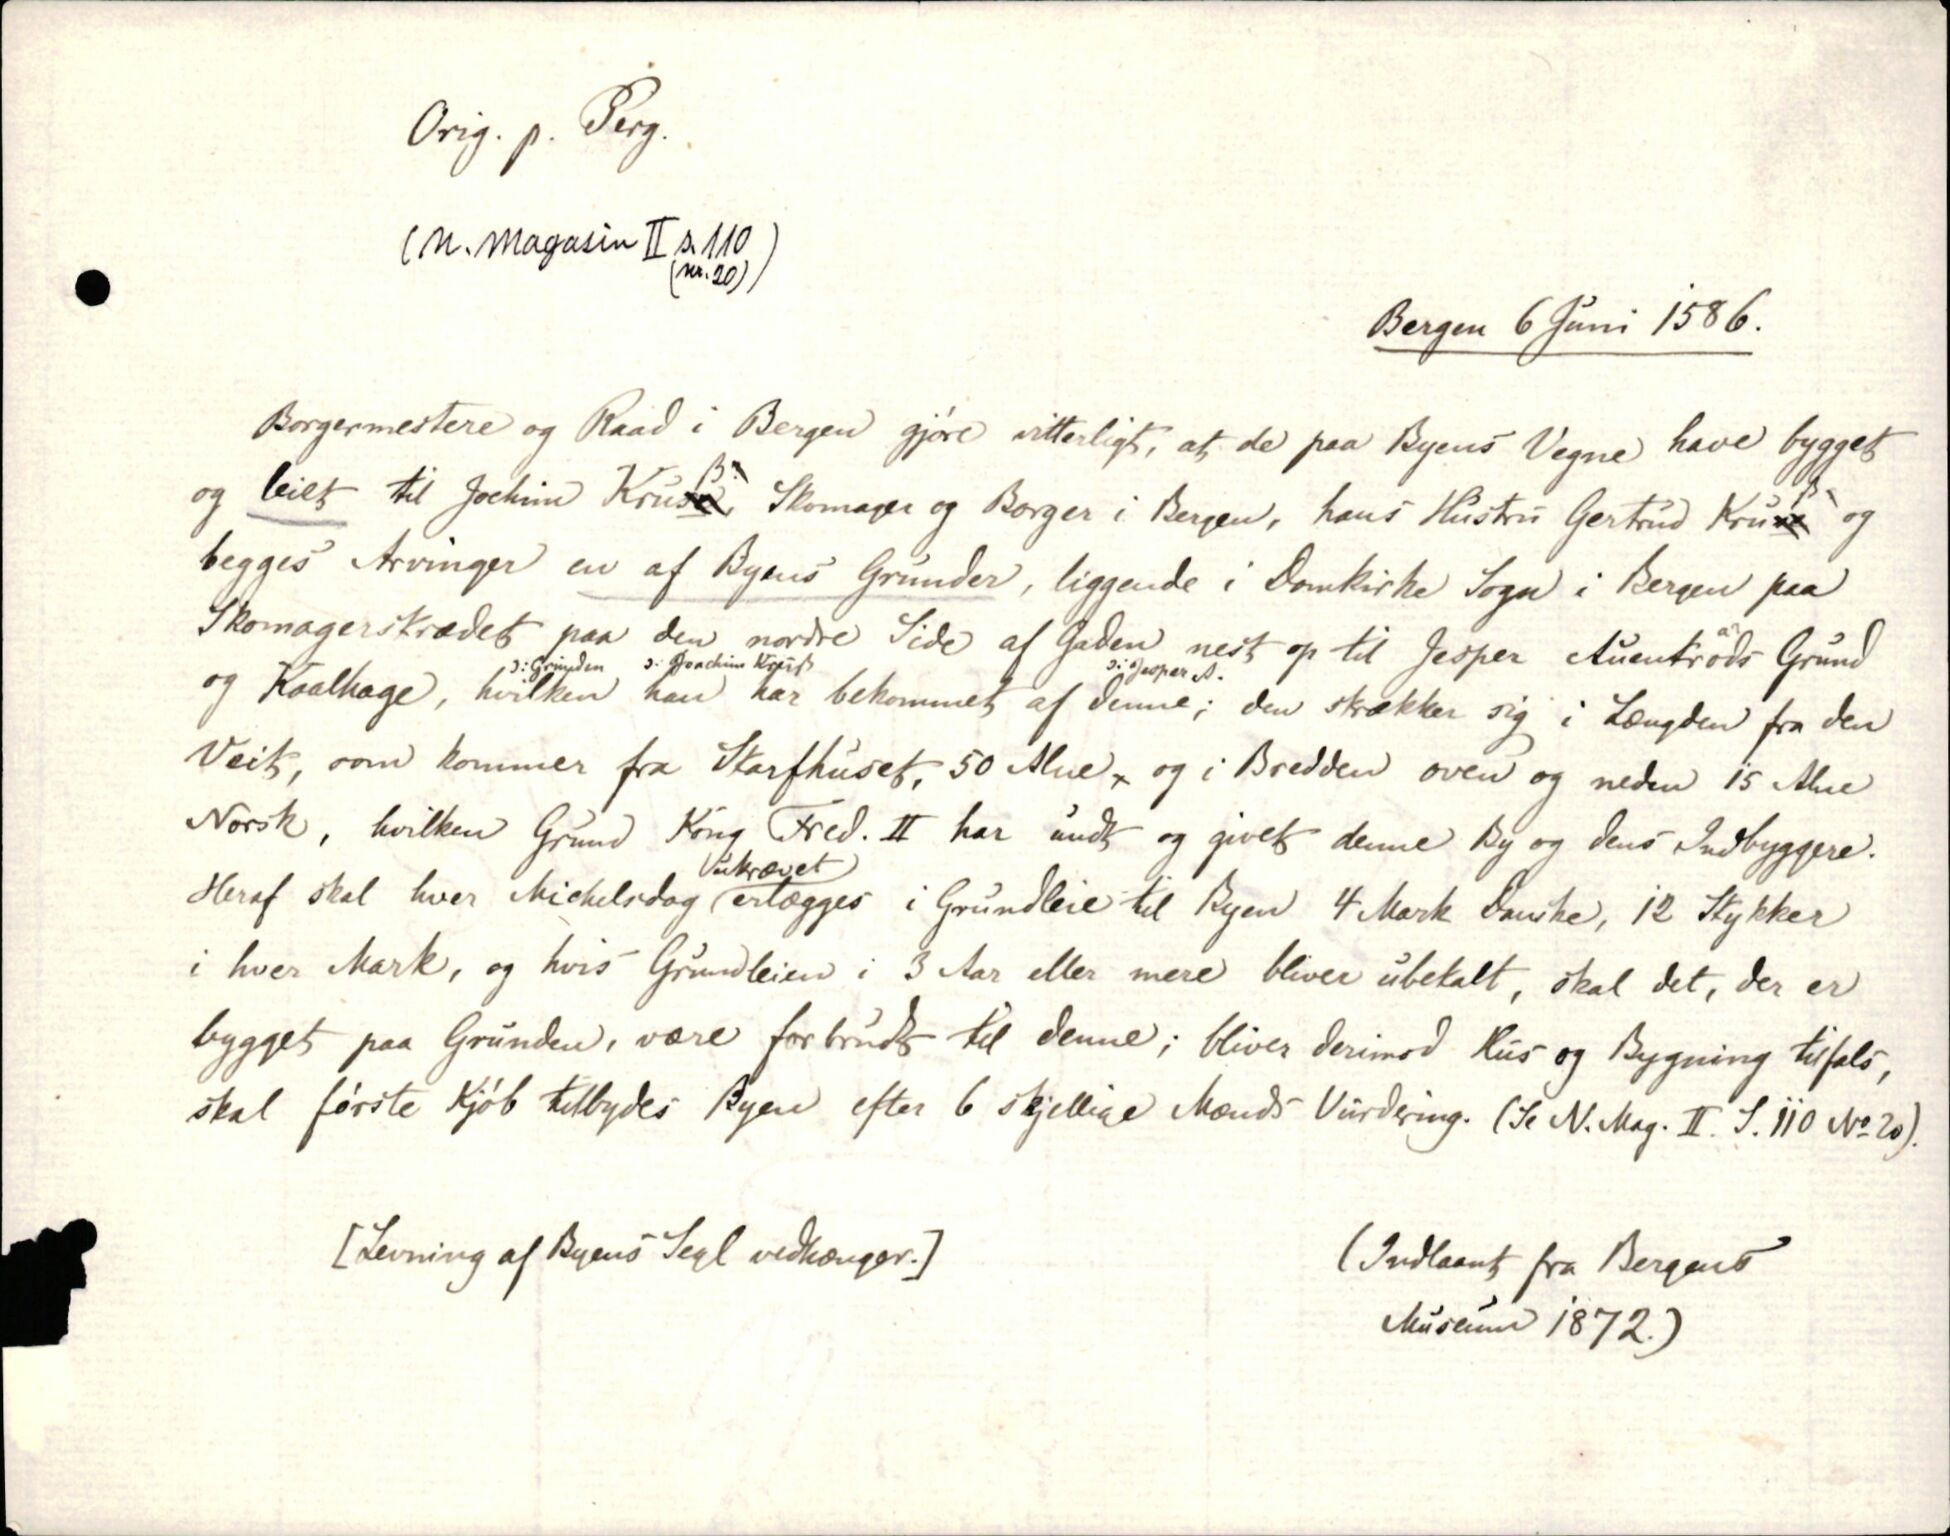 Orig. p. Perg.
(N. Magasin II s. 110
(nr. 20))
Bergen 6 Juni 1586.
Borgermestere og Raad i Bergen gjöre vitterligt, at de paa Byens Vegne have bygget
og leiet til Jochim Kruß, Skomager og Borger i Bergen, hans Hustru Gertrud Kruß og
begges Arvinger en af Byens Grunder, liggende i Domkirke Sogn i Bergen paa
Skomagerstrædet paa den nordre Side af Gaden nest op til Jesper Auentröds Grund
ɔ: Grunden ɔ: Joachim Kruß ɔ: Jesper A.
og Kaalhage, hvilken han har bekommet af denne; den strækker sig i Længden fra den
Veit, som kommer fra Starfhuset, 50 Alne, og i Bredden oven og neden 15 Alne
Norsk, hvilken Grund Kong Fred. II har undt og givet denne By og dens Indbyggere.
Ukrævet
Heraf skal hver Michelsdag erlægges i Grundleie til Byen 4 Mark Danske, 12 Stykker
i hver Mark, og hvis Grundleien i 3 Aar eller mere bliver ubetalt, skal det, der er
bygget paa Grunden, være forbrudt til denne; bliver derimod Hus og Bygning tilfals,
skal förste Kjöb tilbydes Byen efter 6 skjellige Mænds Vurdering. (Se N. Mag. II. S. 110 No 20).
[Levning af Byens Segl vedhænger.]
(Indlaant fra Bergens
Museum 1872.)